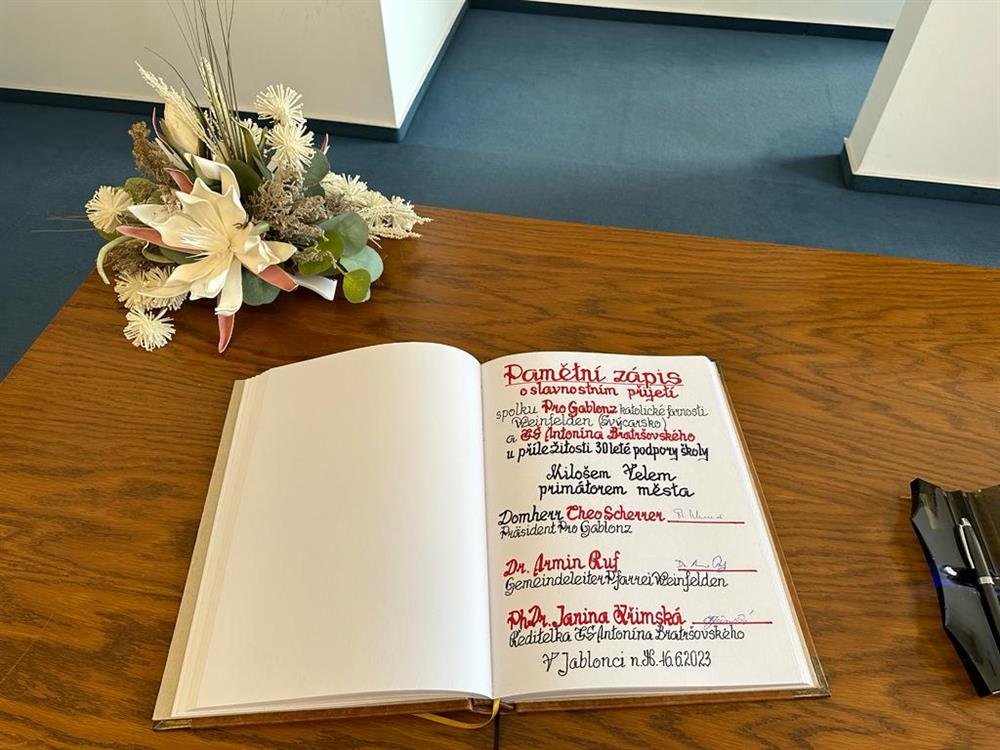 Pamětní zápis
o slavnostním přijetí
spolku Pro Gablonz katolické farnosti
Weinfelden (Švýcarsko)
a ZŠ Antonína Bratršovského
u příležitosti 30leté podpory školy
Milošem Velem
primátorem města
Domherr Theo Scherrer
Präsident Pro Gablonz
Dr. Armin Ruf
Gemeindeleiter Pfarrei Weinfelden
PhDr. Janina Křimská
Ředitelka ZŠ Antonína Bratršovského
V Jablonci n.N. 16.6.2023